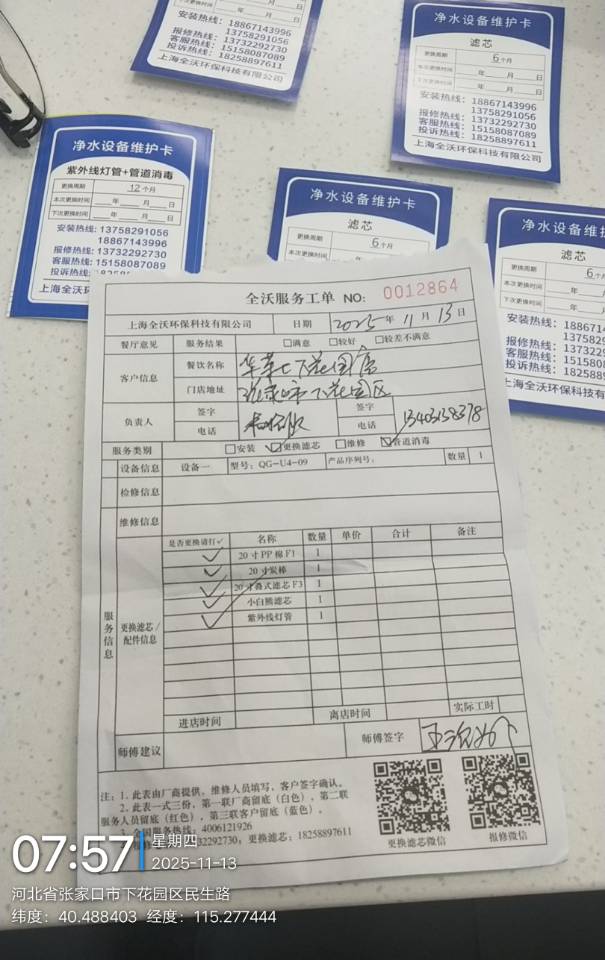 更换周期
本次更换时间 年 月 日
下次更换时间 年 月 日
安装热线: 18867143996
13758291056
报修热线: 13732292730
客服热线: 15158087089
投诉热线: 18258897611
上海全沃环保科技有限公司
净水设备维护卡
滤芯
更换周期 6个月
本次更换时间 年 月 日
下次更换时间 年 月 日
安装热线: 18867143996
13758291056
报修热线: 13732292730
客服热线: 15158087089
投诉热线: 18258897611
上海全沃环保科技有限公司
净水设备维护卡
紫外线灯管+管道消毒
更换周期 12个月
本次更换时间 年 月 日
下次更换时间 年 月 日
安装热线: 13758291056
18867143996
报修热线: 13732292730
客服热线: 15158087089
投诉热线: 18258
上海全沃环
净水设备维护卡
滤芯
更换周期 6个月
本次更换时间
净水设备维护
滤芯
更换周期 6个月
本次更换时间 年
下次更换时间 年
安装热线: 188671
137582
报修热线: 137322
客服热线: 151580
投诉热线: 18258
上海全沃环保科技有
全沃服务工单 NO: 0012864
上海全沃环保科技有限公司 日期 2025年11月13日
餐厅意见 服务结果 □满意 □较好 □较差不满意
客户信息 餐饮名称 华莱士下花园店
门店地址 张家口市下花园区
负责人 签字 签字
电话 电话 13403138378
服务类别 □安装 ☑更换滤芯 □维修 ☑管道消毒
设备信息 设备一 型号: QG-U4-09 产品序列号: 数量 1
检修信息
维修信息
服务信息
更换滤芯/配件信息
是否更换请打✓ 名称 数量 单价 合计 备注
✓ 20寸PP棉F1 1
✓ 20寸炭棒 1
✓ 20寸叠式滤芯F3 1
✓ 小白熊滤芯 1
✓ 紫外线灯管 1
进店时间 离店时间 实际工时
师傅建议 师傅签字
注: 1. 此表由厂商提供, 维修人员填写, 客户签字确认。
2. 此表一式三份, 第一联厂商留底(白色), 第二联
服务人员留底(红色), 第三联客户留底(蓝色)。
3. 全国服务热线: 4006121926
32292730, 更换滤芯: 18258897611
更换滤芯微信 报修微信
07:57 星期四
2025-11-13
河北省张家口市下花园区民生路
纬度: 40.488403 经度: 115.277444